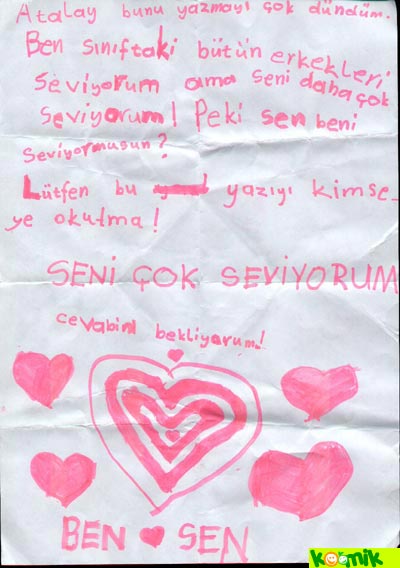 Atalay bunu yazmayı çok dündüm.
Ben sınıftaki bütün erkekleri
seviyorum ama seni daha çok
seviyorum! Peki sen beni
seviyormusun?
Lütfen bu yazıyı kimse-
ye okutma!
SENİ ÇOK SEVİYORUM
cevabını bekliyorum!
BEN SEN
komik